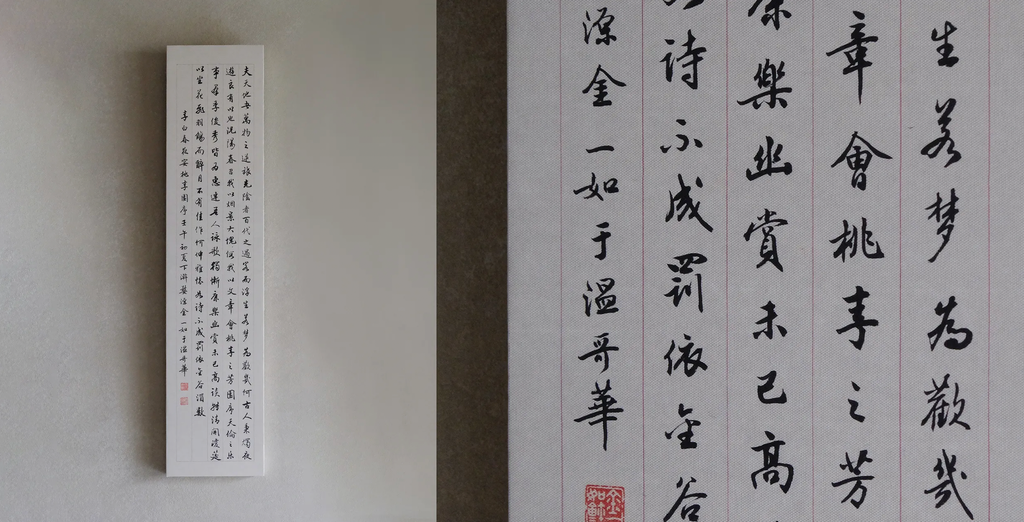 夫天地者萬物之逆旅光陰者百代之過客而浮生若梦為歡幾何古人秉燭夜
遊良有以也況陽春召我以烟景大塊假我以文章會桃李之芳園序天倫之樂
事群季俊秀皆為惠連吾人詠歌獨慚康樂幽賞未已高談轉清開瓊筵
以坐花飛羽觴而醉月不有佳作何伸雅懷如詩不成罰依金谷酒數
李白春夜宴桃李園序壬午初夏源金一如于溫哥華
生若梦為歡幾
章會桃李之芳
康樂幽賞未已高
詩不成罰依金谷
源金一如于溫哥華